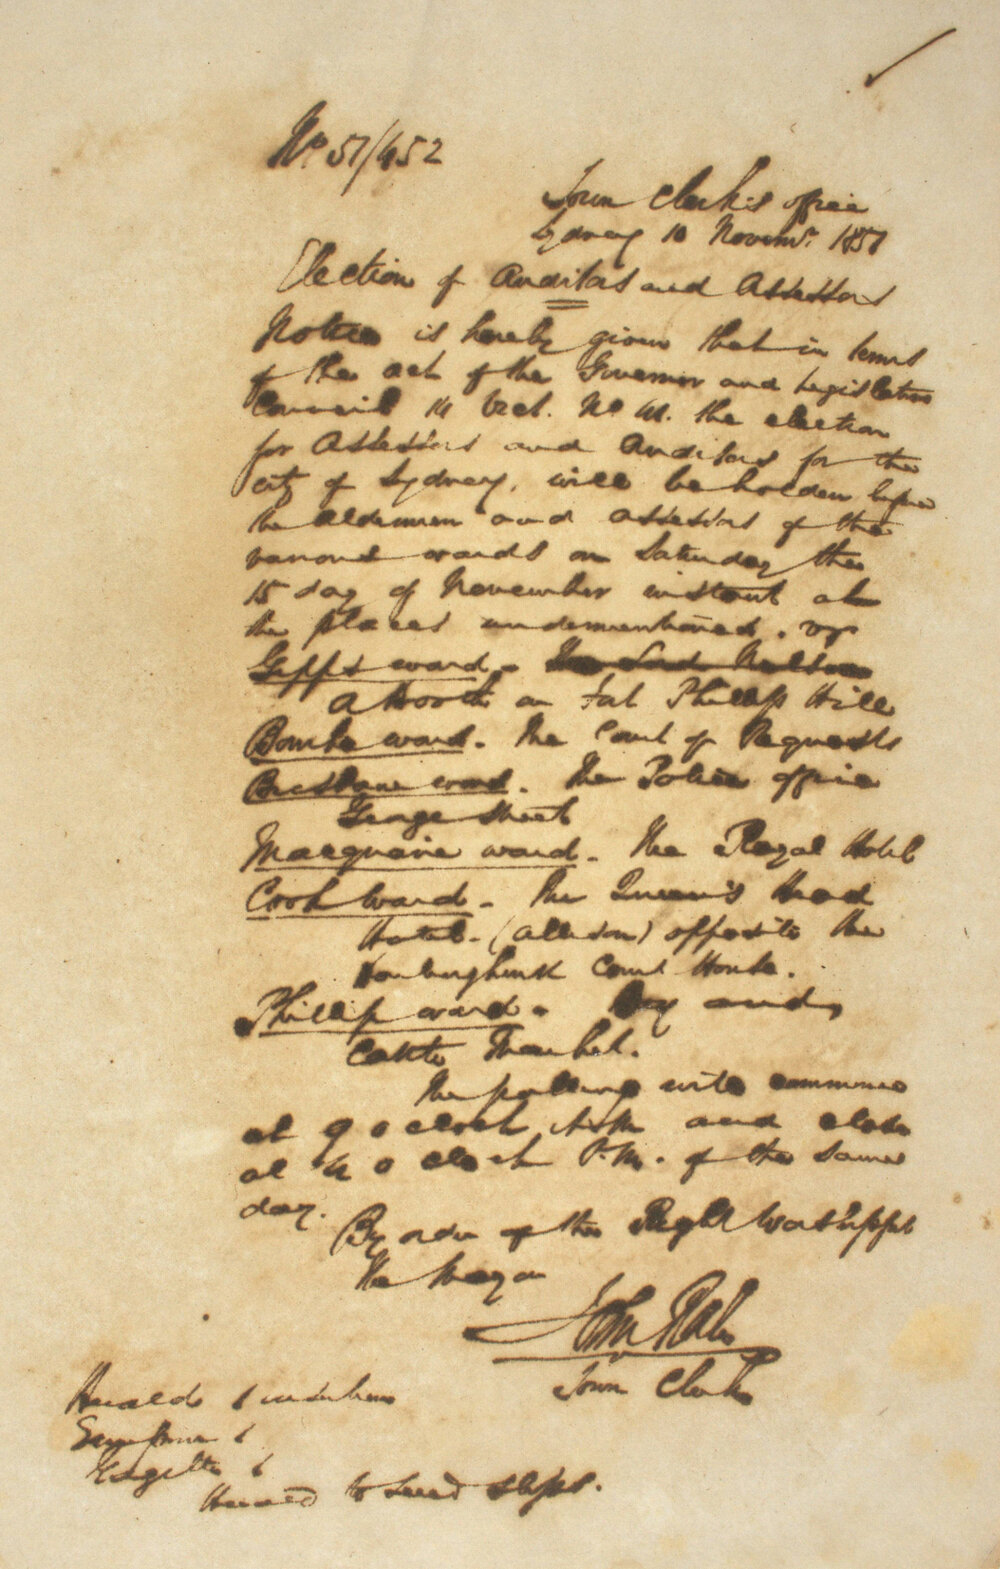 No 51/452
Town Clerk's office
Sydney 10 Novemr. 1851
Election of Auditors and Assessors
Notice is hereby given that in terms
of the act of the Governor and Legislative
Council 14 Vict. No 41. the election
for Assessors and Auditors for the
city of Sydney, will be holden before
the aldermen and assessors of the
various wards on Saturday the
15 day of November instant at
the places undermentioned. viz
Gipps ward -
a Booth on Fort Phillip Hill
Bourke ward. The Court of Requests
Brisbane ward. The Police office
George Street
Macquarie ward - The Royal Hotel
Cook Ward - The Queen's Head
Hotel - (Allison) opposite the
Court House.
Phillip ward - Hay and
Cattle Market.
The polling will commence
at 9 o clock A.M and close
at 4 o clock P.M. of the same
day.
By order of the Right Worshipful
the Mayor
John Rae
Town Clerk
Herald 6 insertions
6
6
Herald to send slips.